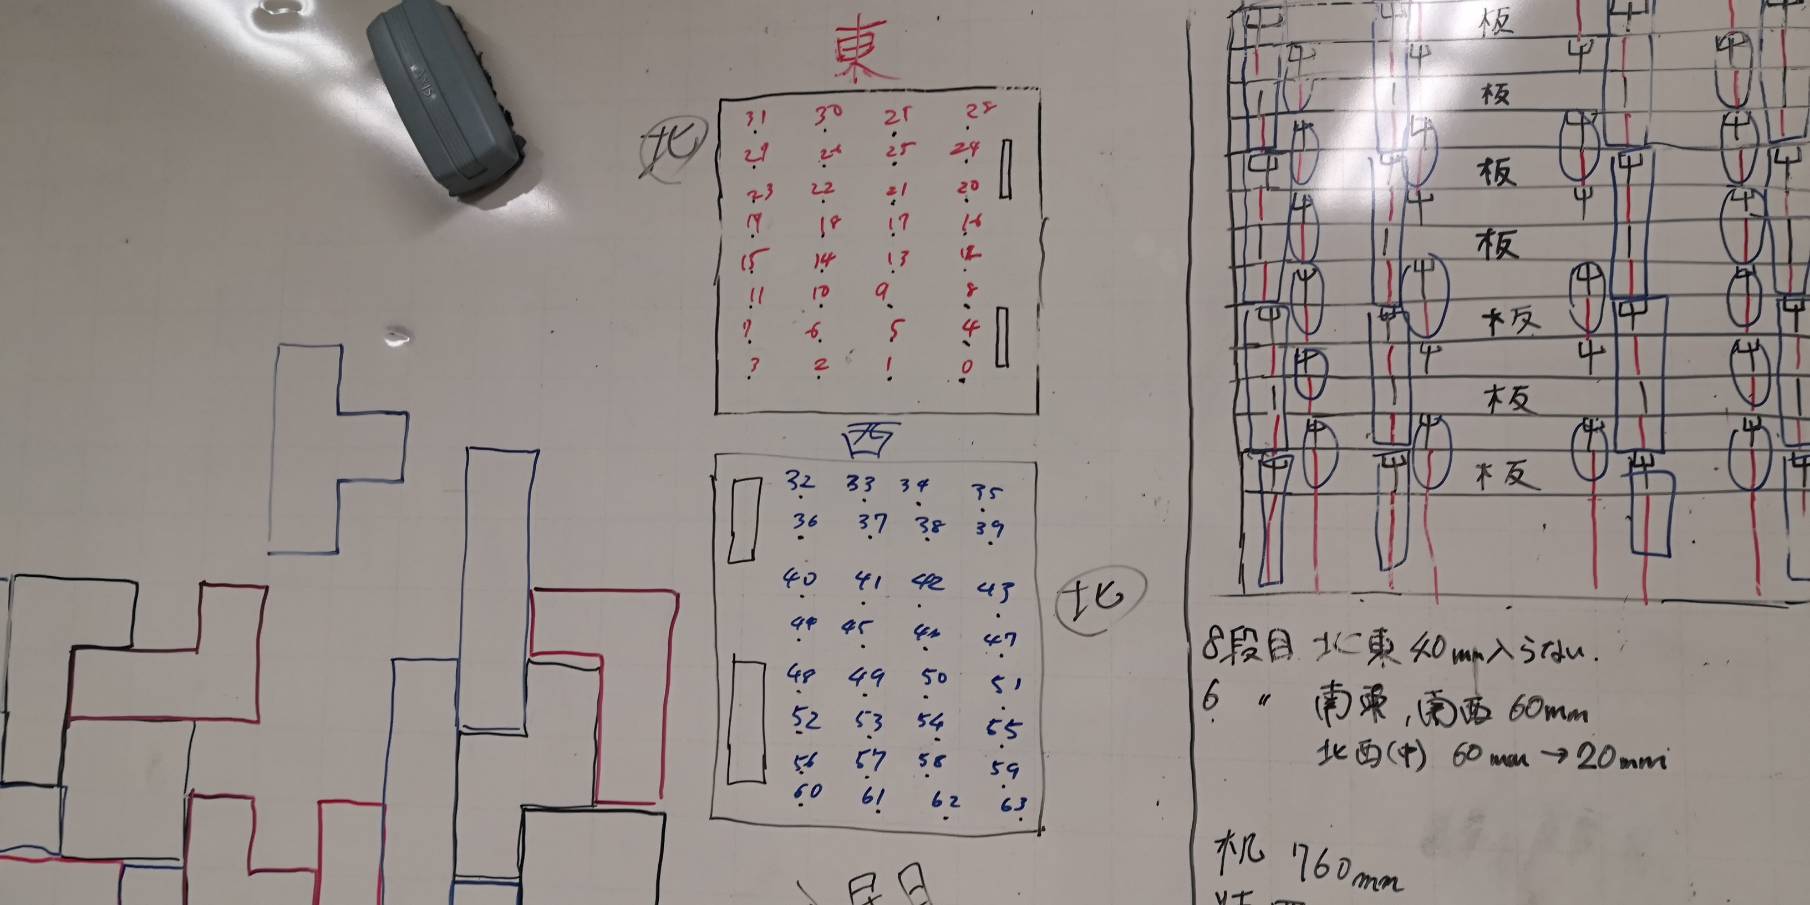 東
北
31 30 29 28
27 26 25 24
23 22 21 20
19 18 17 16
15 14 13 12
11 10 9 8
7 6 5 4
3 2 1 0
西
北
32 33 34 35
36 37 38 39
40 41 42 43
44 45 46 47
48 49 50 51
52 53 54 55
56 57 58 59
60 61 62 63
板
板
板
板
板
板
板
8段目 北東 40mm入らない.
6 〃 南東,南西 60mm
北西(中) 60mm→20mm
机 760mm